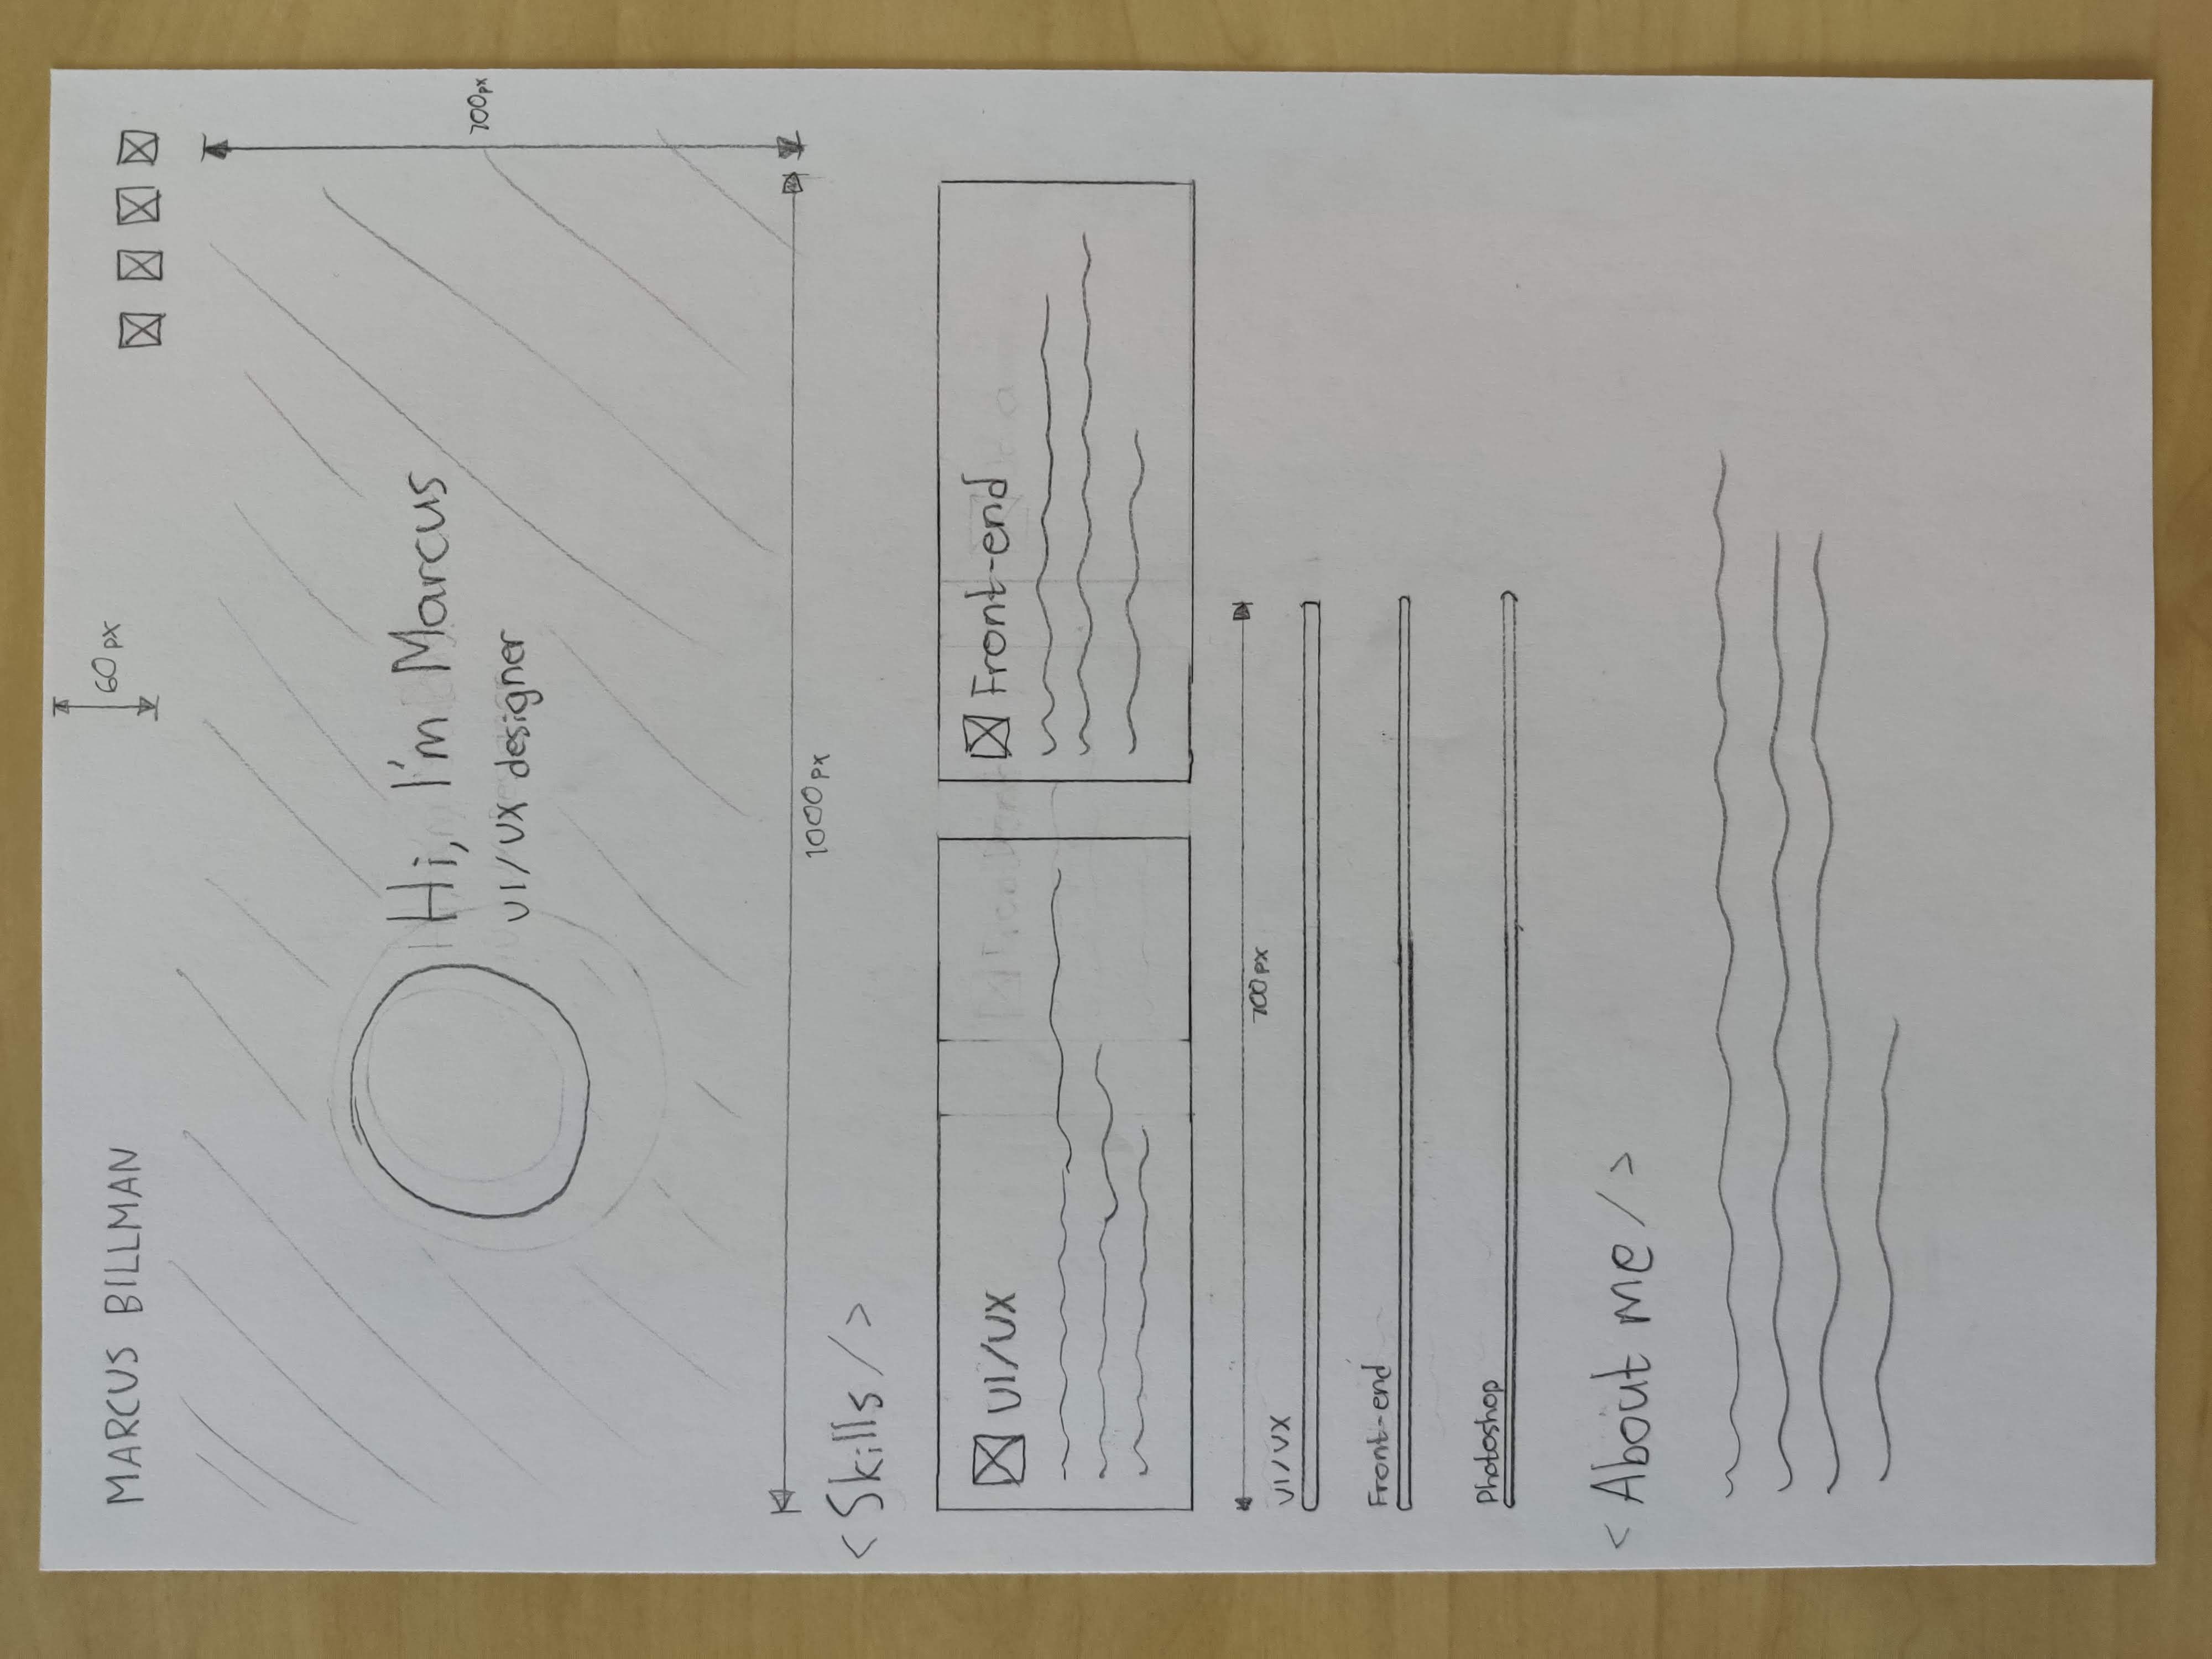 MARCUS BILLMAN
60 px
Hi, I'm Marcus
UI/UX designer
700px
1000 px
< Skills / >
UI/UX
Front-end
700 px
UI/UX
Front-end
Photoshop
< About me / >